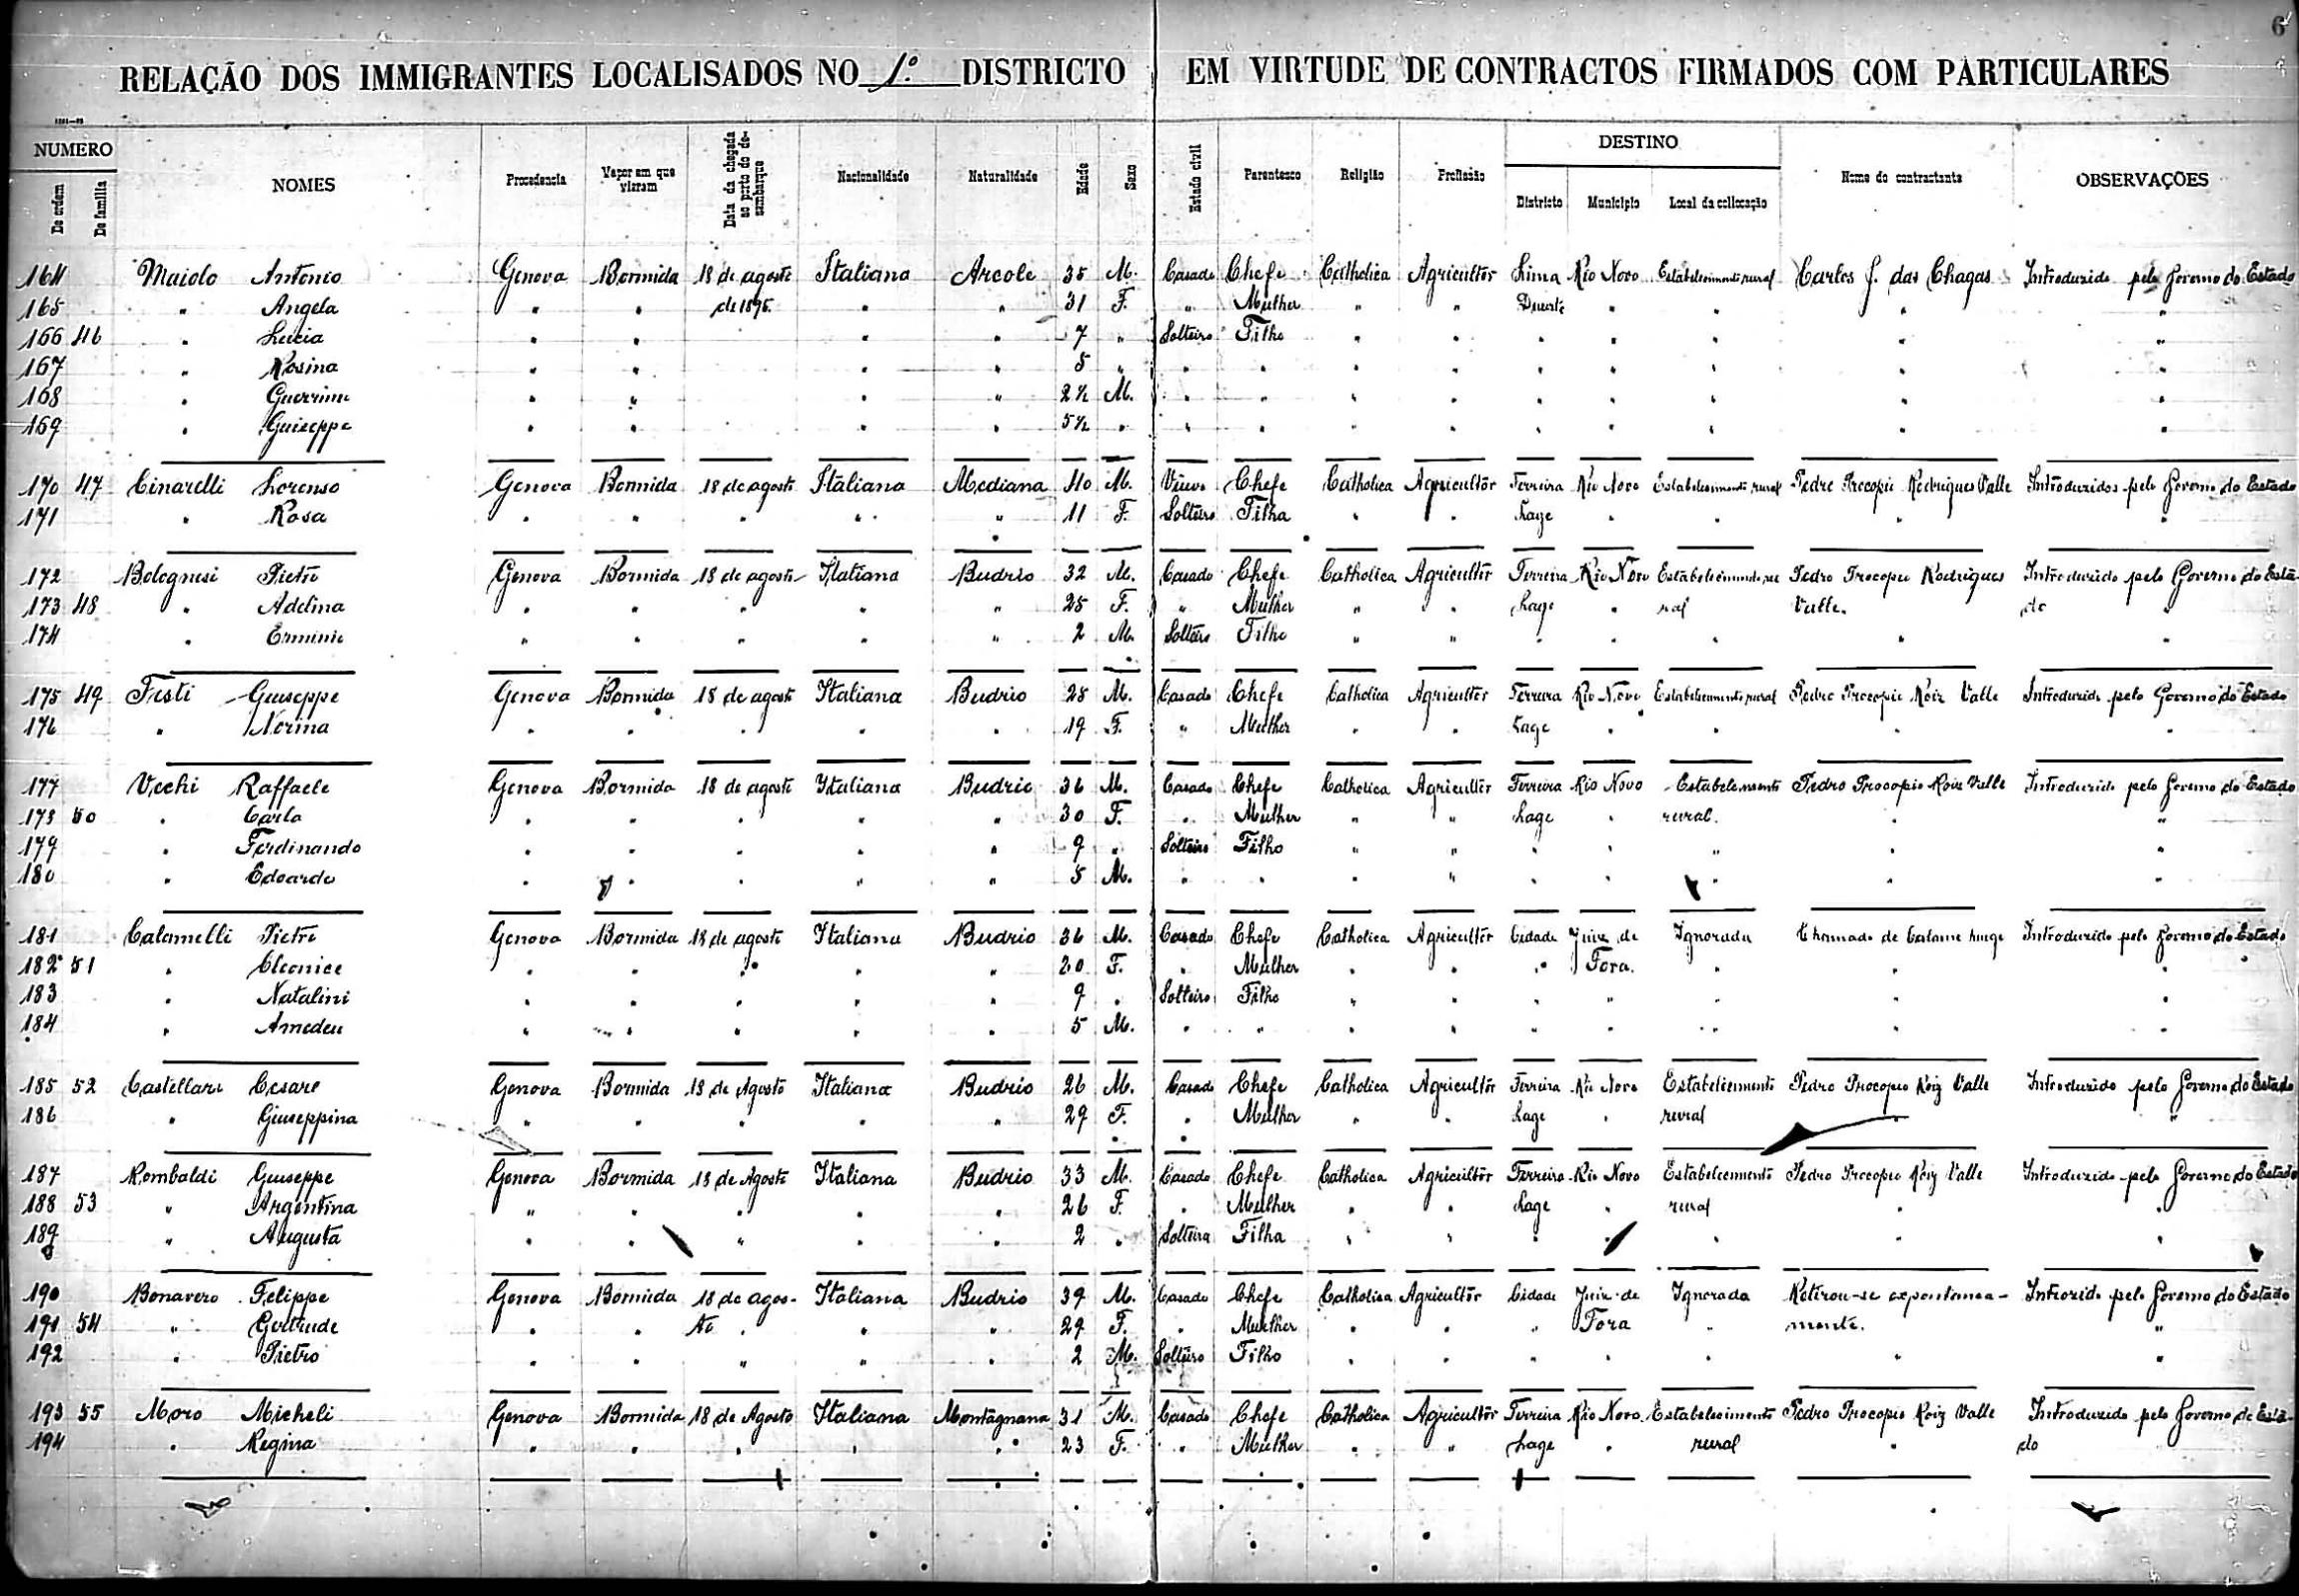 6
RELAÇÃO DOS IMMIGRANTES LOCALISADOS NO 1.º DISTRICTO EM VIRTUDE DE CONTRACTOS FIRMADOS COM PARTICULARES
NUMERO DESTINO
De ordem De familia NOMES Procedencia Vapor em que vieram Data da chegada ao porto do desembarque Nacionalidade Naturalidade Edade Sexo Estado civil Parentesco Religião Profissão Districto Municipio Local da collocação Nome do contractante OBSERVAÇÕES
164 Maiolo Antonio Genova Bormida 18 de agosto Italiana Arcole 35 M. Casado Chefe Catholica Agricultor Lima Rio Novo Estabelecimento rural Carlos J. das Chagas Introduzido pelo Governo do Estado
165 " Angela " " de 1896. " " 31 F. " Mulher " " Duarte " " " "
166 46 " Lucia " " " " 7 " Solteiro Filho " " " " " " "
167 " Rosina " " " " 5 " " " " " " " " " "
168 " Guerrino " " " " 2½ M. " " " " " " " " "
169 " Guiseppe " " " " 5½ " " " " " " " " " "
170 47 Cinarelli Lorenso Genova Bormida 18 de agosto Italiana Mediana 40 M. Viuvo Chefe Catholica Agricultor Ferreira Rio Novo Estabelecimento rural Pedro Procopio Rodrigues Valle Introduzidos pelo Governo do Estado
171 " Rosa " " " " " 11 F. Solteiro Filha " " Lage " " " "
172 Bolognesi Pietro Genova Bormida 18 de agosto Italiana Budrio 32 M. Casado Chefe Catholica Agricultor Ferreira Rio Novo Estabelecimento ru Pedro Procopio Rodrigues Introduzido pelo Governo do Esta-
173 48 " Adelina " " " " " 25 F. " Mulher " " Lage " ral Valle. do "
174 " Erminio " " " " " 2 M. Solteiro Filho " " " " " " "
175 49 Festi Guiseppe Genova Bormida 18 de agosto Italiana Budrio 28 M. Casado Chefe Catholica Agricultor Ferreira Rio Novo Estabelecimento rural Pedro Procopio Roiz Valle Introduzido pelo Governo do Estado
176 " Norina " " " " " 19 F. " Mulher " " Lage " " " "
177 Vechi Raffaele Genova Bormida 18 de agosto Italiana Budrio 36 M. Casado Chefe Catholica Agricultor Ferreira Rio Novo Estabelemento Pedro Procopio Roiz Valle Introduzido pelo Governo do Estado
178 50 " Carla " " " " " 30 F. " Mulher " " Lage " rural. " "
179 " Ferdinando " " " " " 9 " Solteiro Filho " " " " " " "
180 " Edoardo " " " " " 5 M. " " " " " " " " "
181 Calamelli Pietro Genova Bormida 18 de agosto Italiana Budrio 36 M. Casado Chefe Catholica Agricultor Cidade Juiz de Ignorada Introduzido pelo Governo do Estado
182 51 " Cleonice " " " " " 20 F. " Mulher " " " Fora. " " "
183 " Natalini " " " " " 9 " Solteiro Filho " " " " " " "
184 " Amedeu " " " " " 5 M. " " " " " " " " "
185 52 Castellari Cesare Genova Bormida 18 de Agosto Italiana Budrio 26 M. Casado Chefe Catholica Agricultor Ferreira Rio Novo Estabelicimento Pedro Procopio Roiz Valle Introduzido pelo Governo do Estado
186 " Giuseppina " " " " " 29 F. " Mulher " " Lage " rural " "
187 Rombaldi Guiseppe Genova Bormida 18 de Agosto Italiana Budrio 33 M. Casado Chefe Catholica Agricultor Ferreira Rio Novo Estabelecimento Pedro Procopio Roiz Valle Introduzido pelo Governo do Estado
188 53 " Argentina " " " " " 26 F. " Mulher " " Lage " rural " "
189 " Augusta " " " " " 2 " Solteira Filha " " " " " " "
190 Bonavero Felippe Genova Bormida 18 de agos- Italiana Budrio 39 M. Casado Chefe Catholica Agricultor Cidade Juiz de Ignorada Retirou-se expontanea- Introzido pelo Governo do Estado
191 54 " Gertrude " " to " " 29 F. " Mulher " " " Fora " mente. "
192 " Pietro " " " " " 2 M. Solteiro Filho " " " " " " "
193 55 Moro Micheli Genova Bormida 18 de Agosto Italiana Montagnana 31 M. Casado Chefe Catholica Agricultor Ferreira Rio Novo Estabelecimento Pedro Procopio Roiz Valle Introduzido pelo Governo do Esta-
194 " Regina " " " " " 23 F. " Mulher " " Lage " rural " do